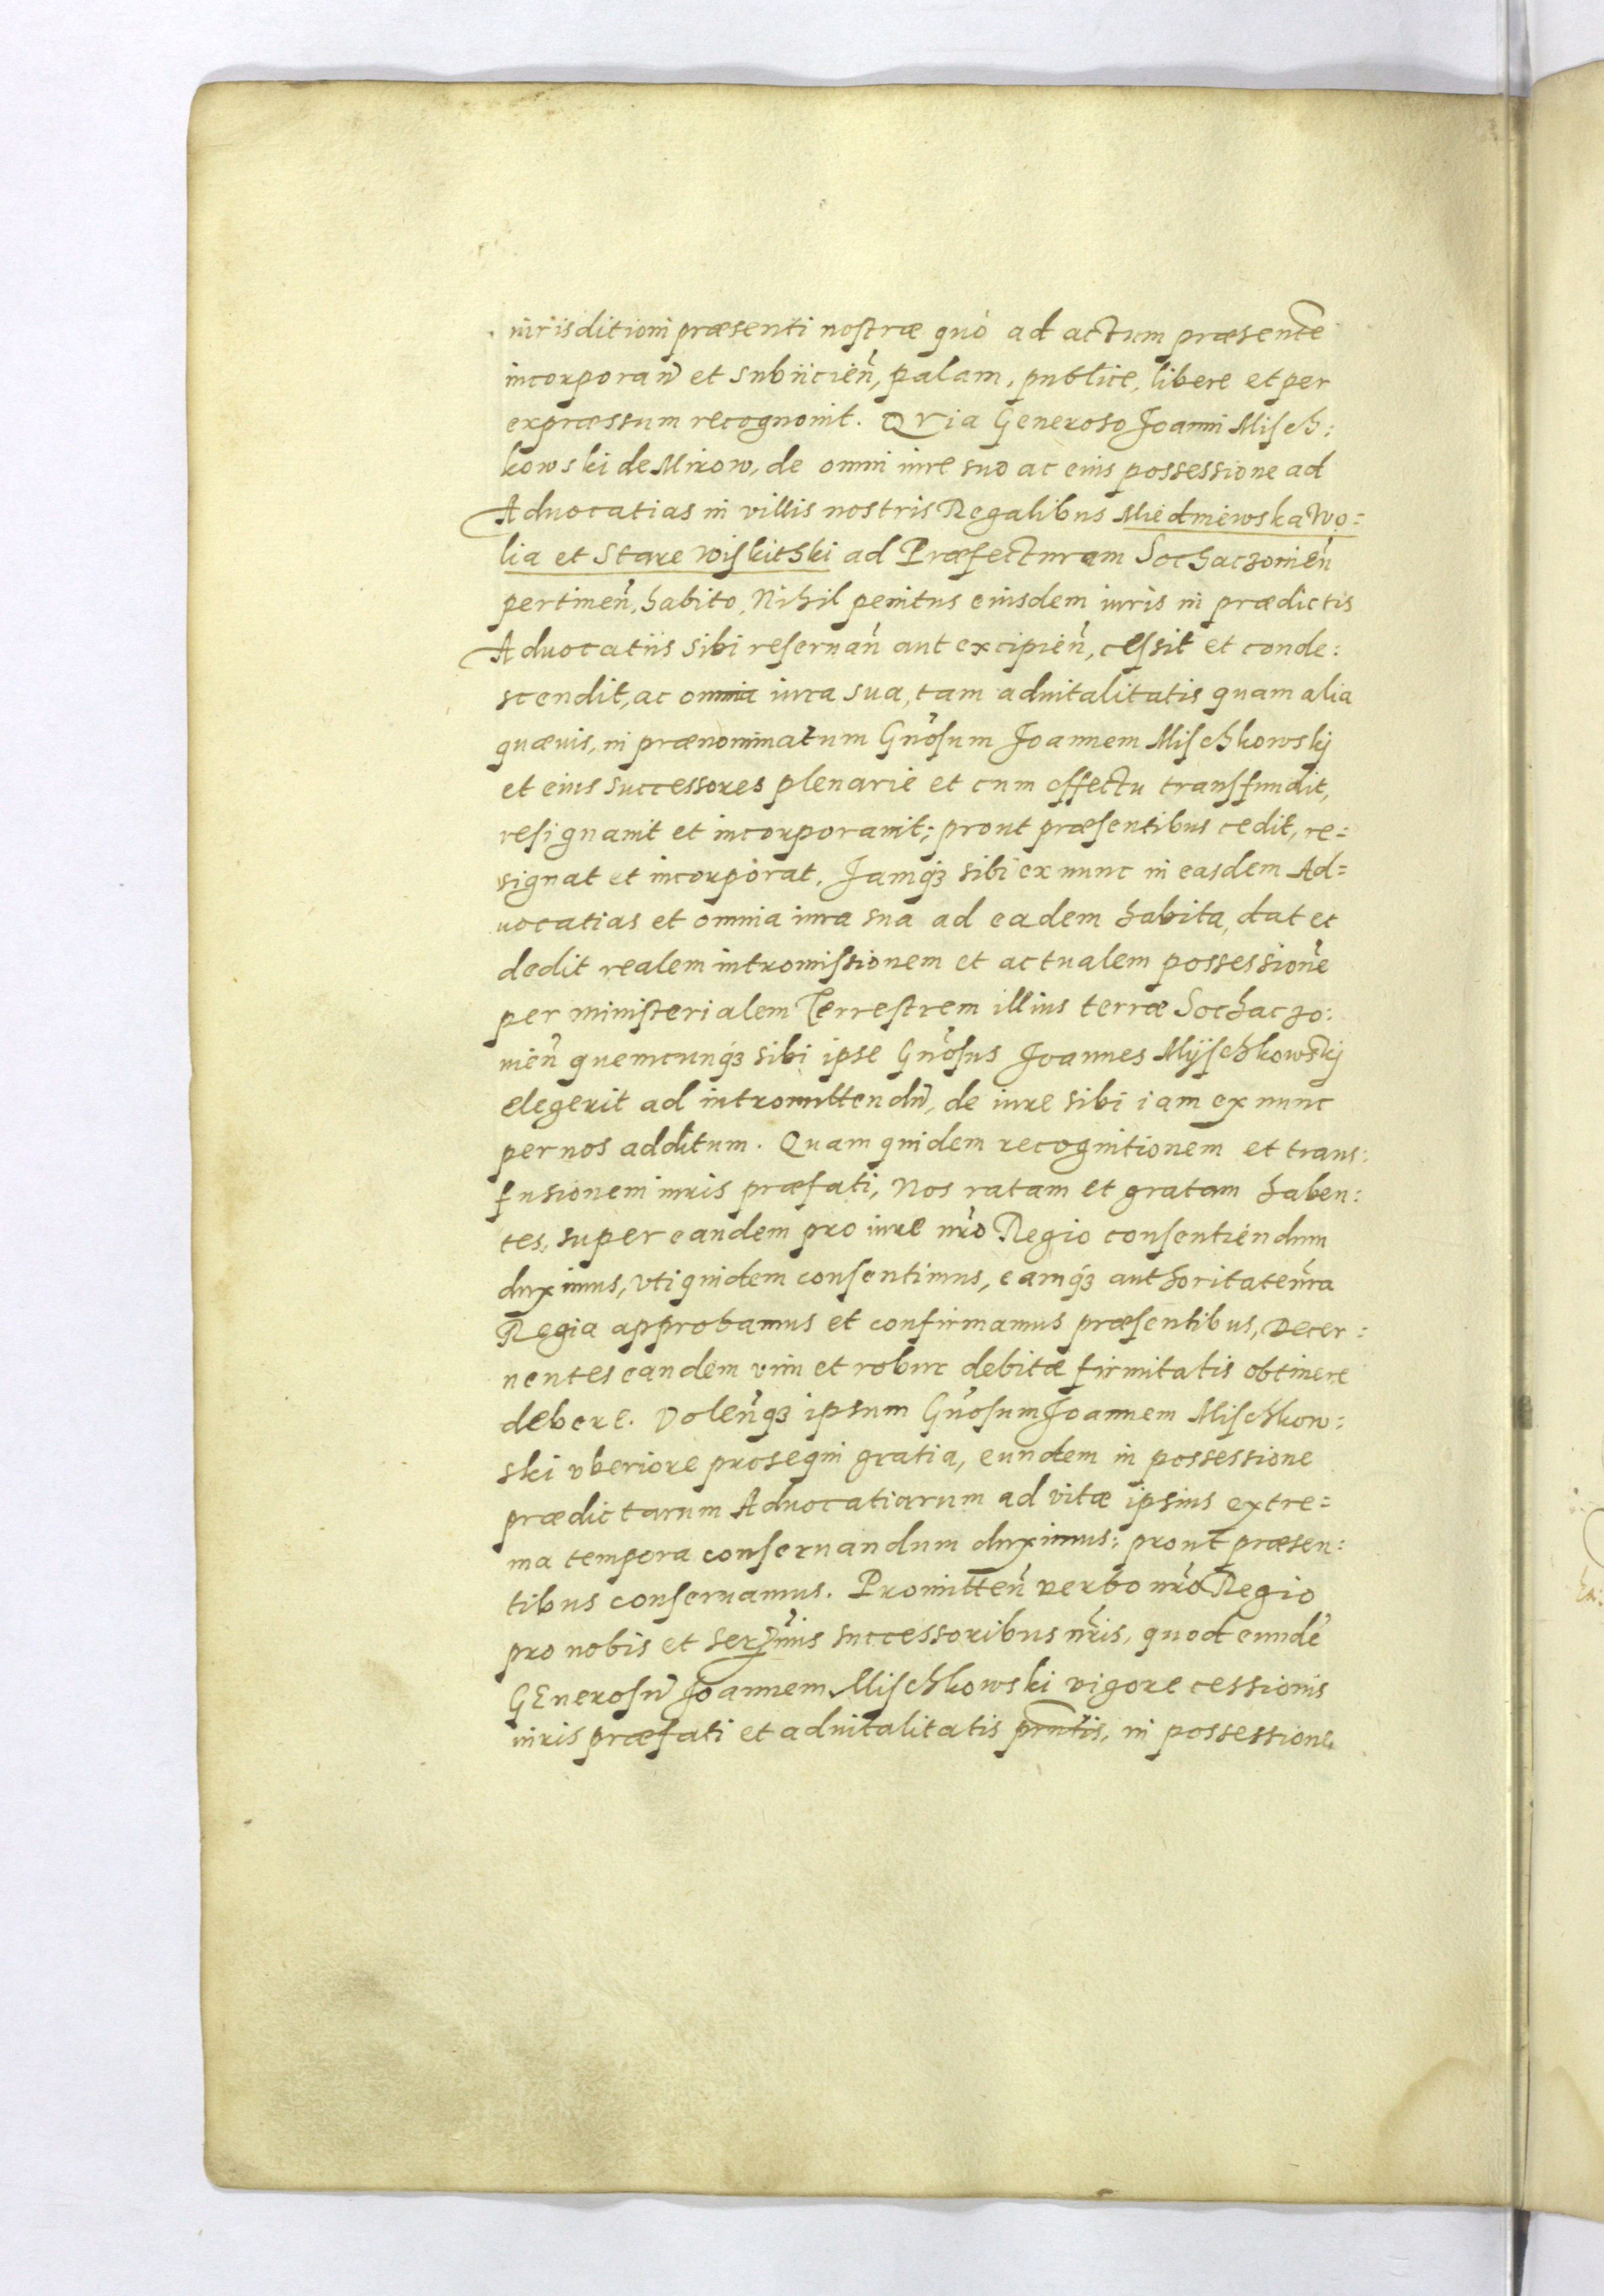 iurisditioni præsenti nostræ quò ad actum præsente͂
incorporan̄ et subiicien̄, palam, publice, libere et per
expræssum recognovit. QVia Generoso Joanni Misch:
kowski de Mirow, de omni iure suo ac eius possessione ad
Aduocatias in villis nostris Regalibus Miedniewska Wo=
lia et Stare Wiskithki ad Præfecturam Sochaczouien̄
pertinen̄, habito, Nihil penitus eiusdem iuris in prædictis
Aduocatiis sibi reseruan̄ aut excipien̄, cessit et conde:
scendit, ac omnia iura sua, tam aduitalitatis quam alia
quæuis, in prænominatum Gn̄osum Joannem Mischkowskj
et eius successores plenarie et cum effectu transfundit,
resignauit et incorporauit; prout præsentibus cedit, re=
signat et incorporat. Jamq₃ sibi ex nunc in easdem Ad=
uocatias et omnia iura sua ad eadem habita, dat et
dedit realem intromissionem et actualem possessione͂
per ministerialem Terrestrem illius terræ Sochaczo:
uien̄ quemcunq₃ sibi ipse Gn̄osus Joannes Mÿschkowskj
elegerit ad intromittendu͂, de iure sibi iam ex nunc
per nos additum. Quam quidem recognitionem et trans:
fusionem iuris præfati, Nos ratam et gratam haben:
tes, super eandem pro iure nr̄o Regio consentiendum
duximus, vti quidem consentimus, eamq₃ authoritate nr̄a
Regia approbamus et confirmamus præsentibus, Decer:
nentes eandem vim et robur debitæ firmitatis obtinere
debere. Volen̄q₃ ipsum Gn̄osum Joannem Mischkow:
ski vberiore prosequi gratia, eundem in possessione
prædictarum Aduocatiarum ad vitæ ipsius extre=
ma tempora conseruandum duximus; prout præsen:
tibus conseruamus. Promitten̄ verbo nr̄o Regio
pro nobis et Ser̄mis successoribus nr̄is, quod eunde͂
GEnerosu͂ Joannem Mischkowski vigore cessionis
iuris præfati et aduitalitatis pr̄ntis, in possessione